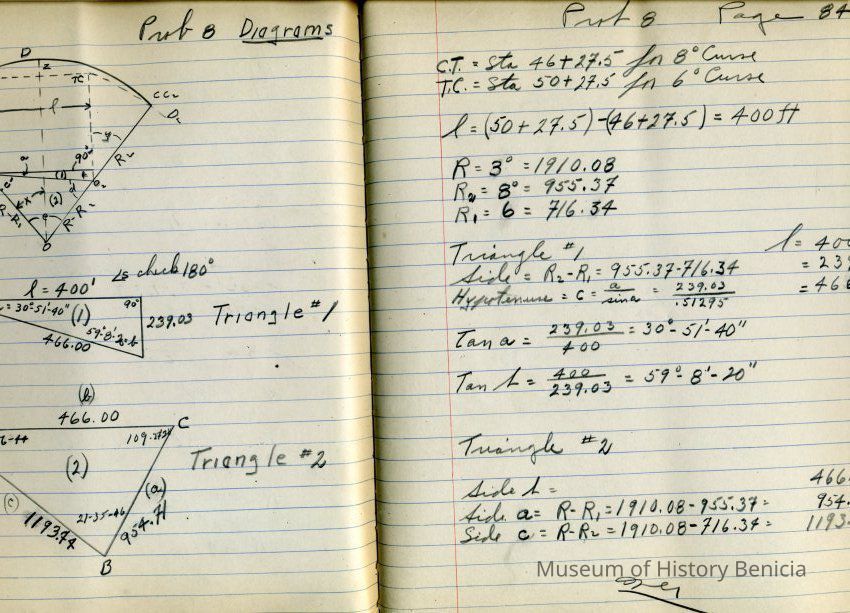 Prob 8 Diagrams
D
Z
TC
CC2
l
R2
90°
(1)
(2)
R-R1
R-R2
O
∠s check 180°
l = 400'
= 30°-51'-40"
(1)
90°
239.03
Triangle #1
59°-8'-20"
466.00
(b)
466.00
C
109
(2)
Triangle #2
(a)
(c)
1193.74
21-35-46
954.71
B
Prob 8 Page 84
C.T. = Sta 46+27.5 for 8° Curve
T.C. = Sta 50+27.5 for 6° Curve
l = (50+27.5)-(46+27.5) = 400 ft
R = 3° = 1910.08
R2 = 8° = 955.37
R1 = 6 = 716.34
Triangle #1
l = 400
Side = R2-R1 = 955.37-716.34 = 239
Hypotenuse = c = a/sin a = 239.03/.51295 = 466
Tan a = 239.03/400 = 30°-51'-40"
Tan b = 400/239.03 = 59°-8'-20"
Triangle #2
Side b = 466.
Side a = R-R1 = 1910.08-955.37 = 954.
Side c = R-R2 = 1910.08-716.34 = 1193.
Museum of History Benicia